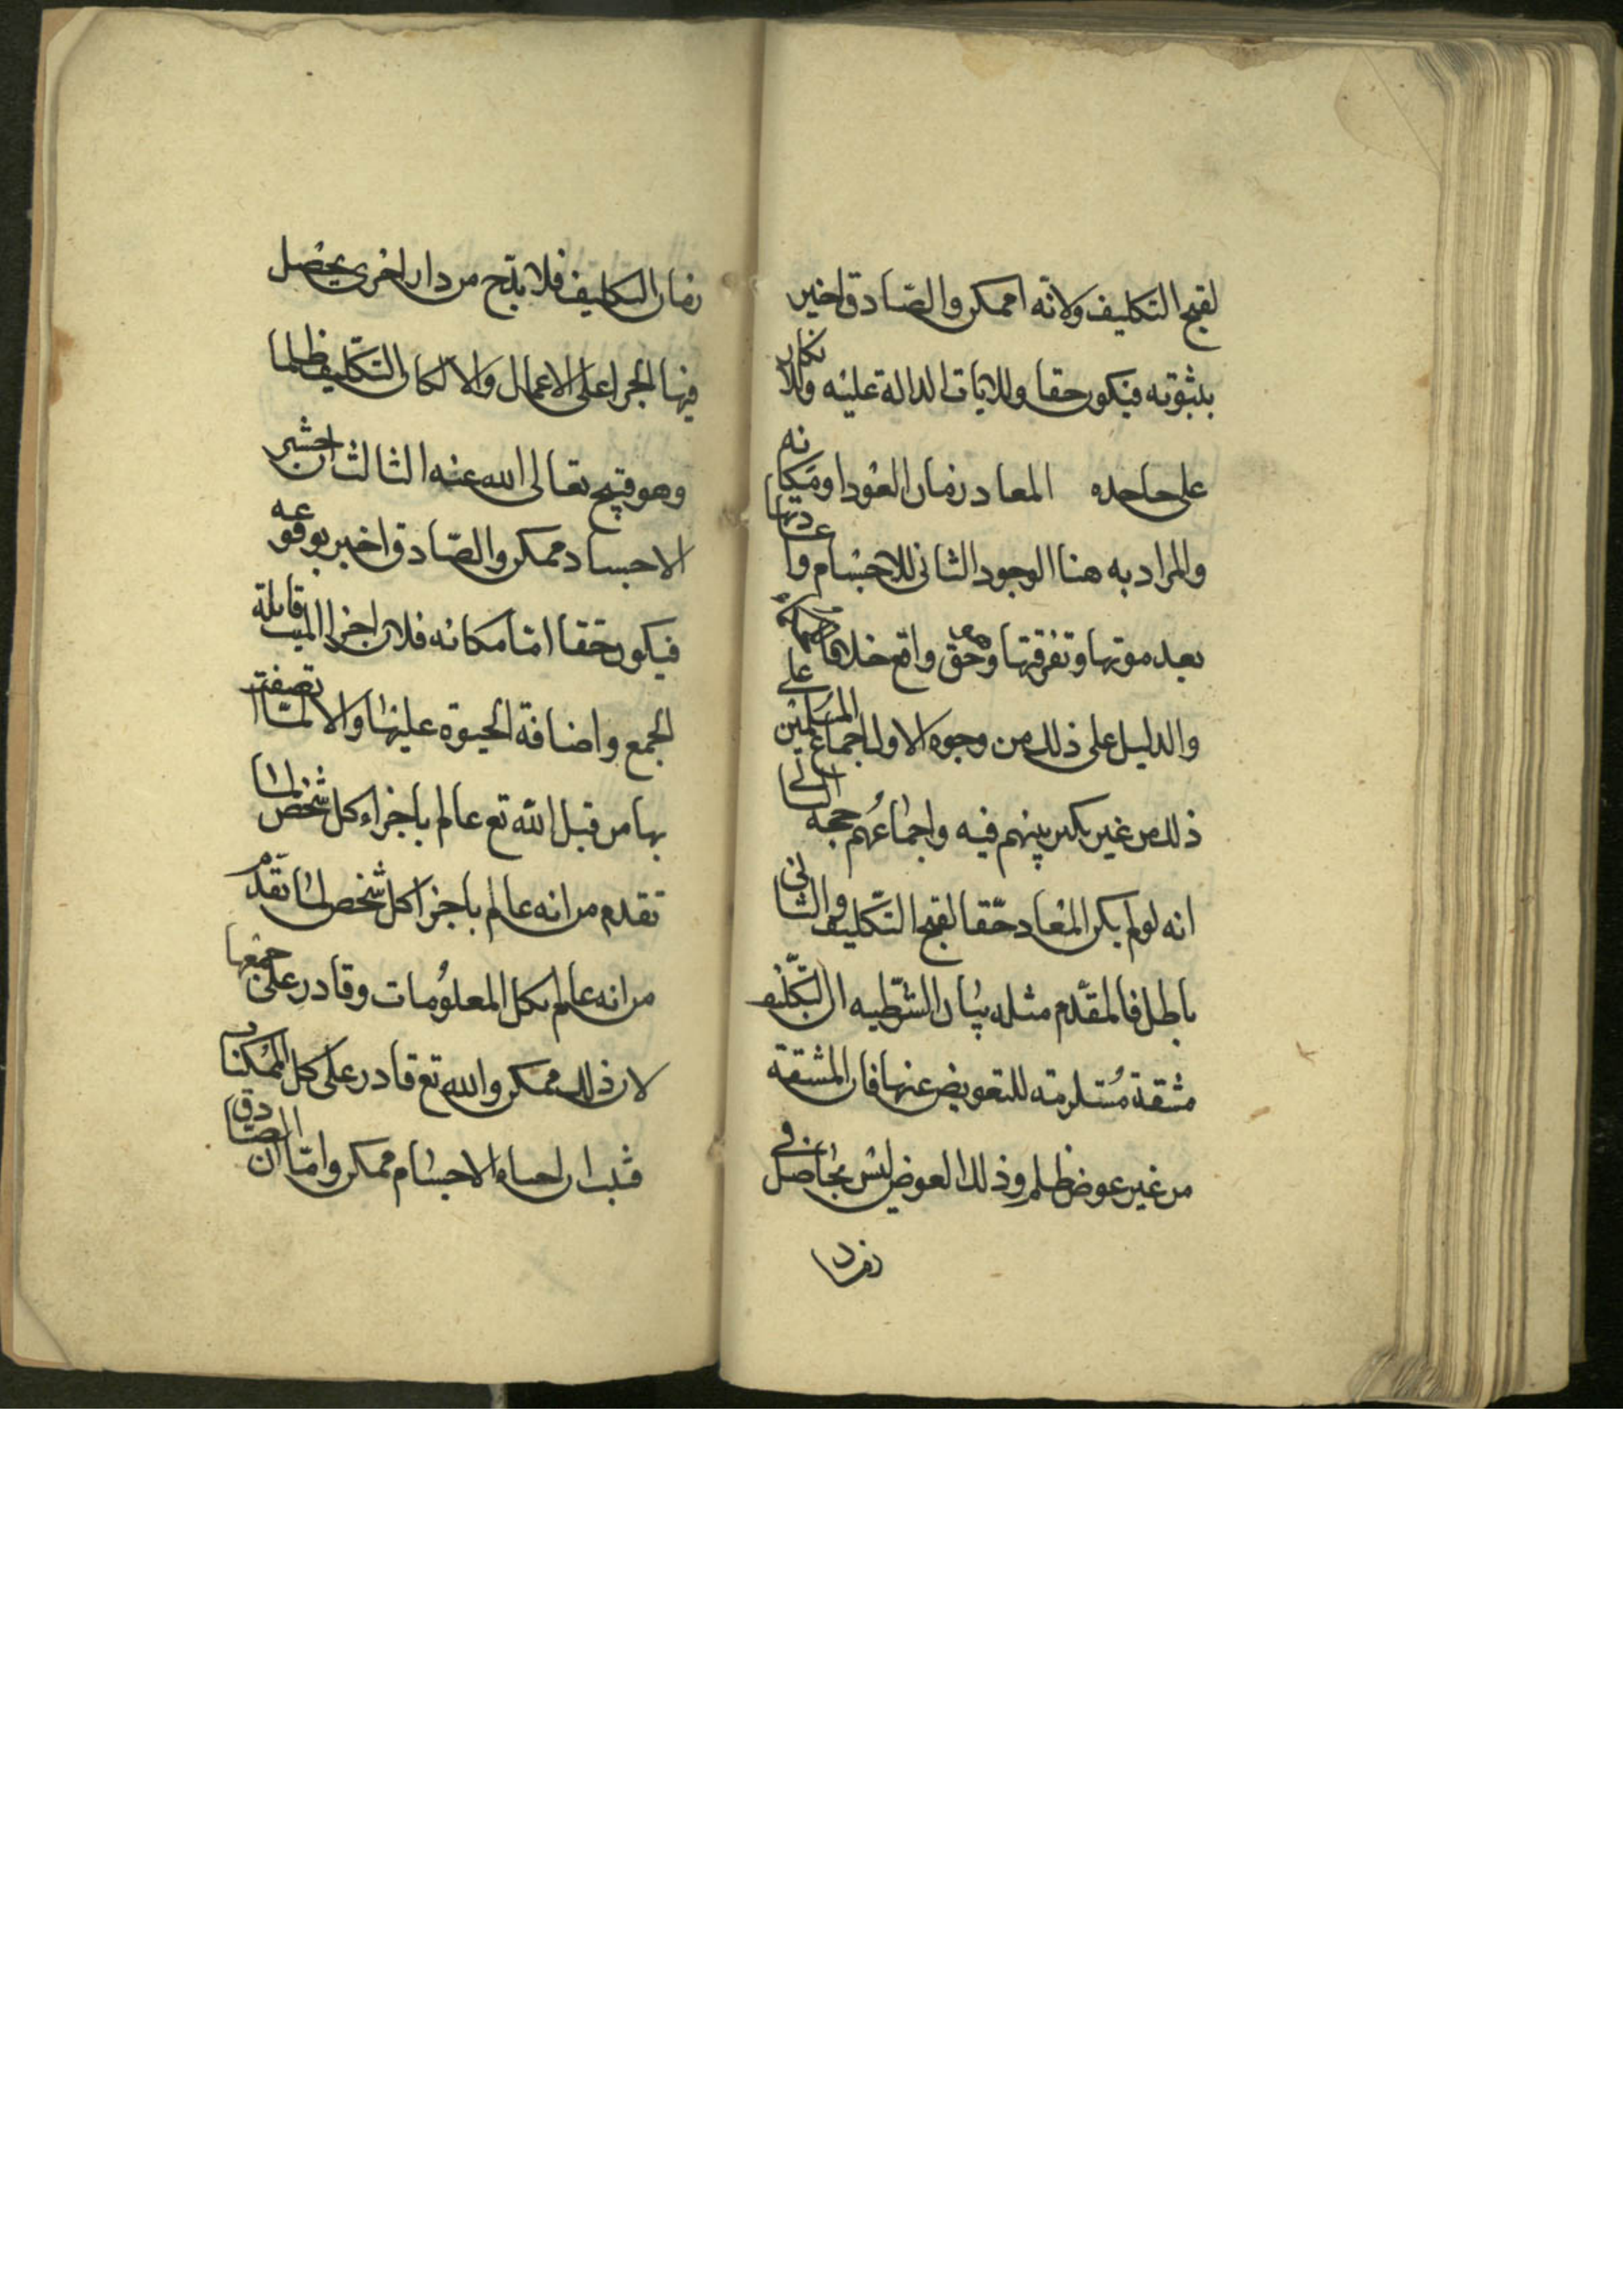 لقبح التكليف ولانه اممكن والصادق اخبر
بثبوته فيكون حقا وللايات الدالة عليه والانكار
على جاحده المعاد زمان العود او مكانه
والمراد به هنا الوجود الثانى للاجسام واعادتها
بعد موتها وتفرقتها وهى حق واقع خلافا للحكماء
والدليل على ذلك من وجوه الاول اجماع المسلمين على
ذلك من غير نكير بينهم فيه واجماعهم حجه الثانى
انه لو لم يكن المعاد حقا لقبح التكليف والثانى
باطل فالمقدم مثله بيان الشرطيه ان التكليف
مشقة مستلزمة للتعويض عنها فان المشقة
من غير عوض ظلم وذلك العوض ليس بحاصل فى
زمان التكليف فلا بد ح من دار اخرى يحصل
فيها الجزا على الاعمال والا لكان التكليف ظلما
وهو قبيح تعالى الله عنه الثالث ان حشر
الاجساد ممكن والصادق اخبر بوقوعه
فيكون حقا اما مكانه فلان اجزا الميت قابلة
الجمع واضافة الحيوة عليها والا لما اتصفت
بها من قبل الله تع عالم باجزاء كل شخص لما
تقدم من انه عالم باجزا كل شخص لما تقدم
من انه عالم بكل المعلومات وقادر على جمعها
لان ذلك ممكن والله تع قادر على كل الممكنات
فثبت ان احياء الاجسام ممكن واما ان الصادق